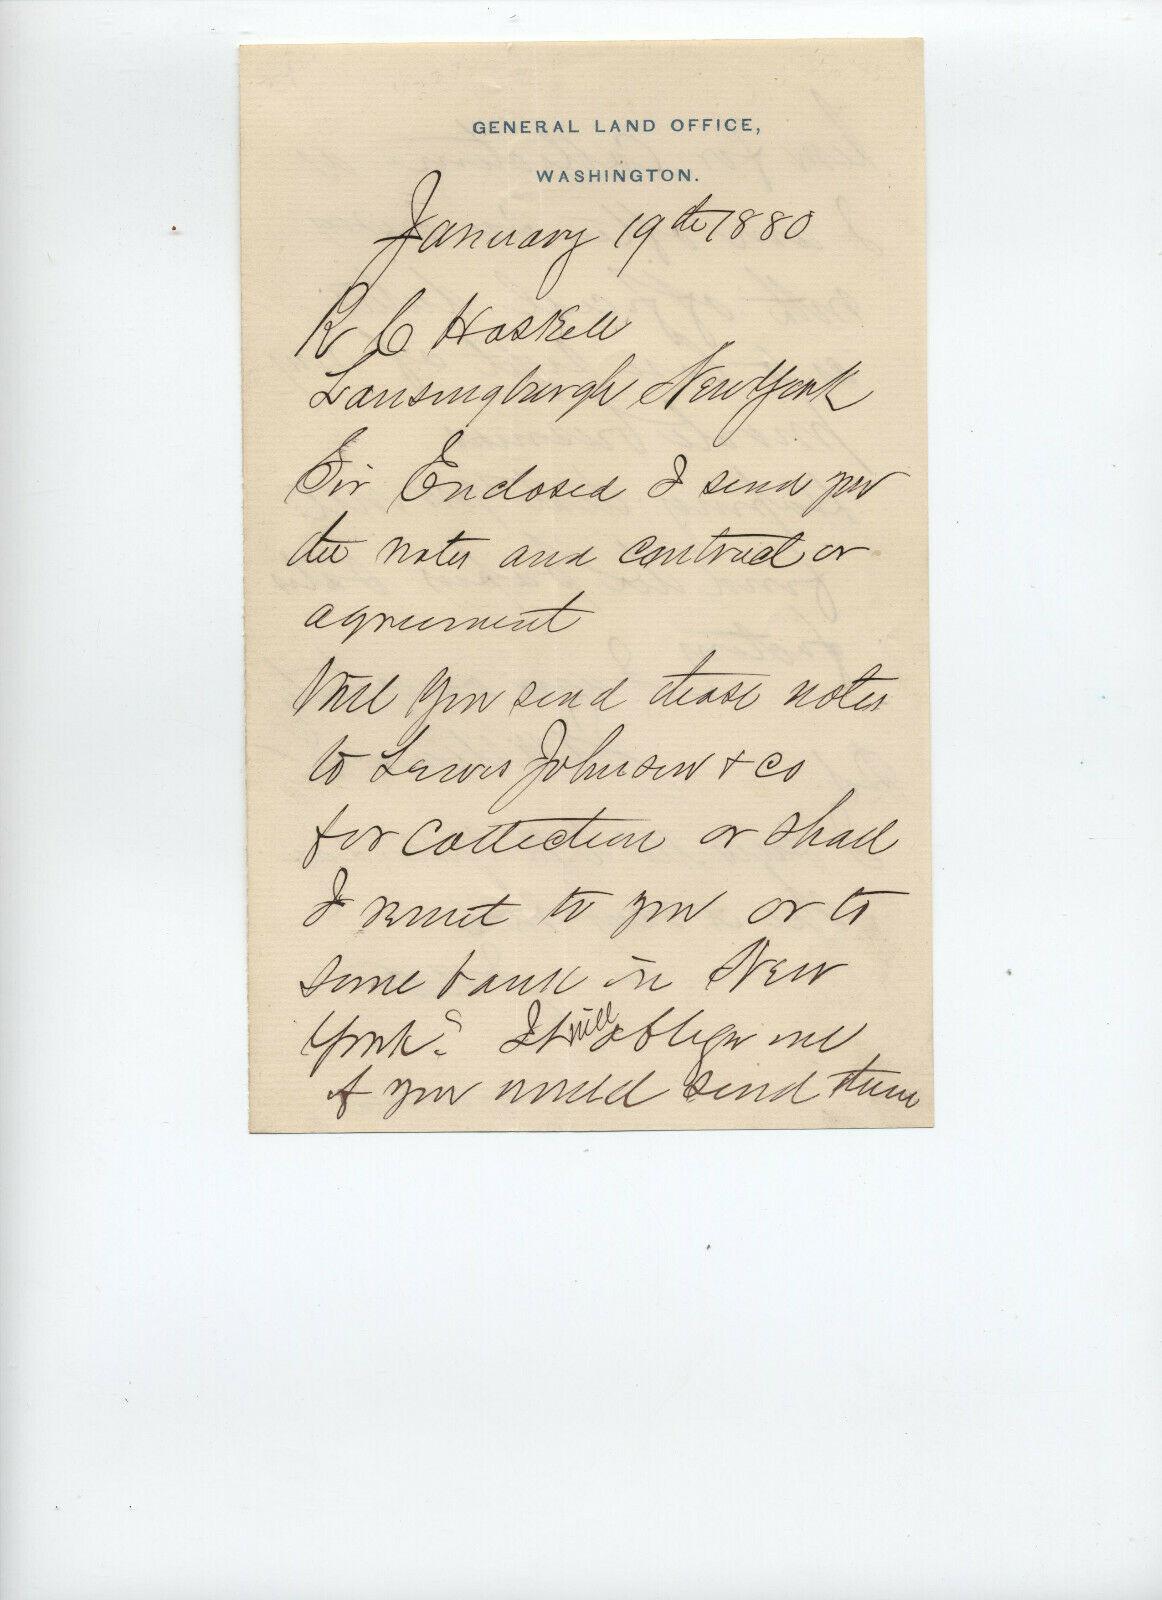 GENERAL LAND OFFICE,
WASHINGTON.
January 19th 1880
R C Haskell
Lansingburgh New York
Sir Enclosed I send you
the notes and contract or
agreement
Will you send these notes
to Lewis Johnson & Co
for collection or shall
I remit to you or to
some bank in New
York? It will oblige me
if you would send them